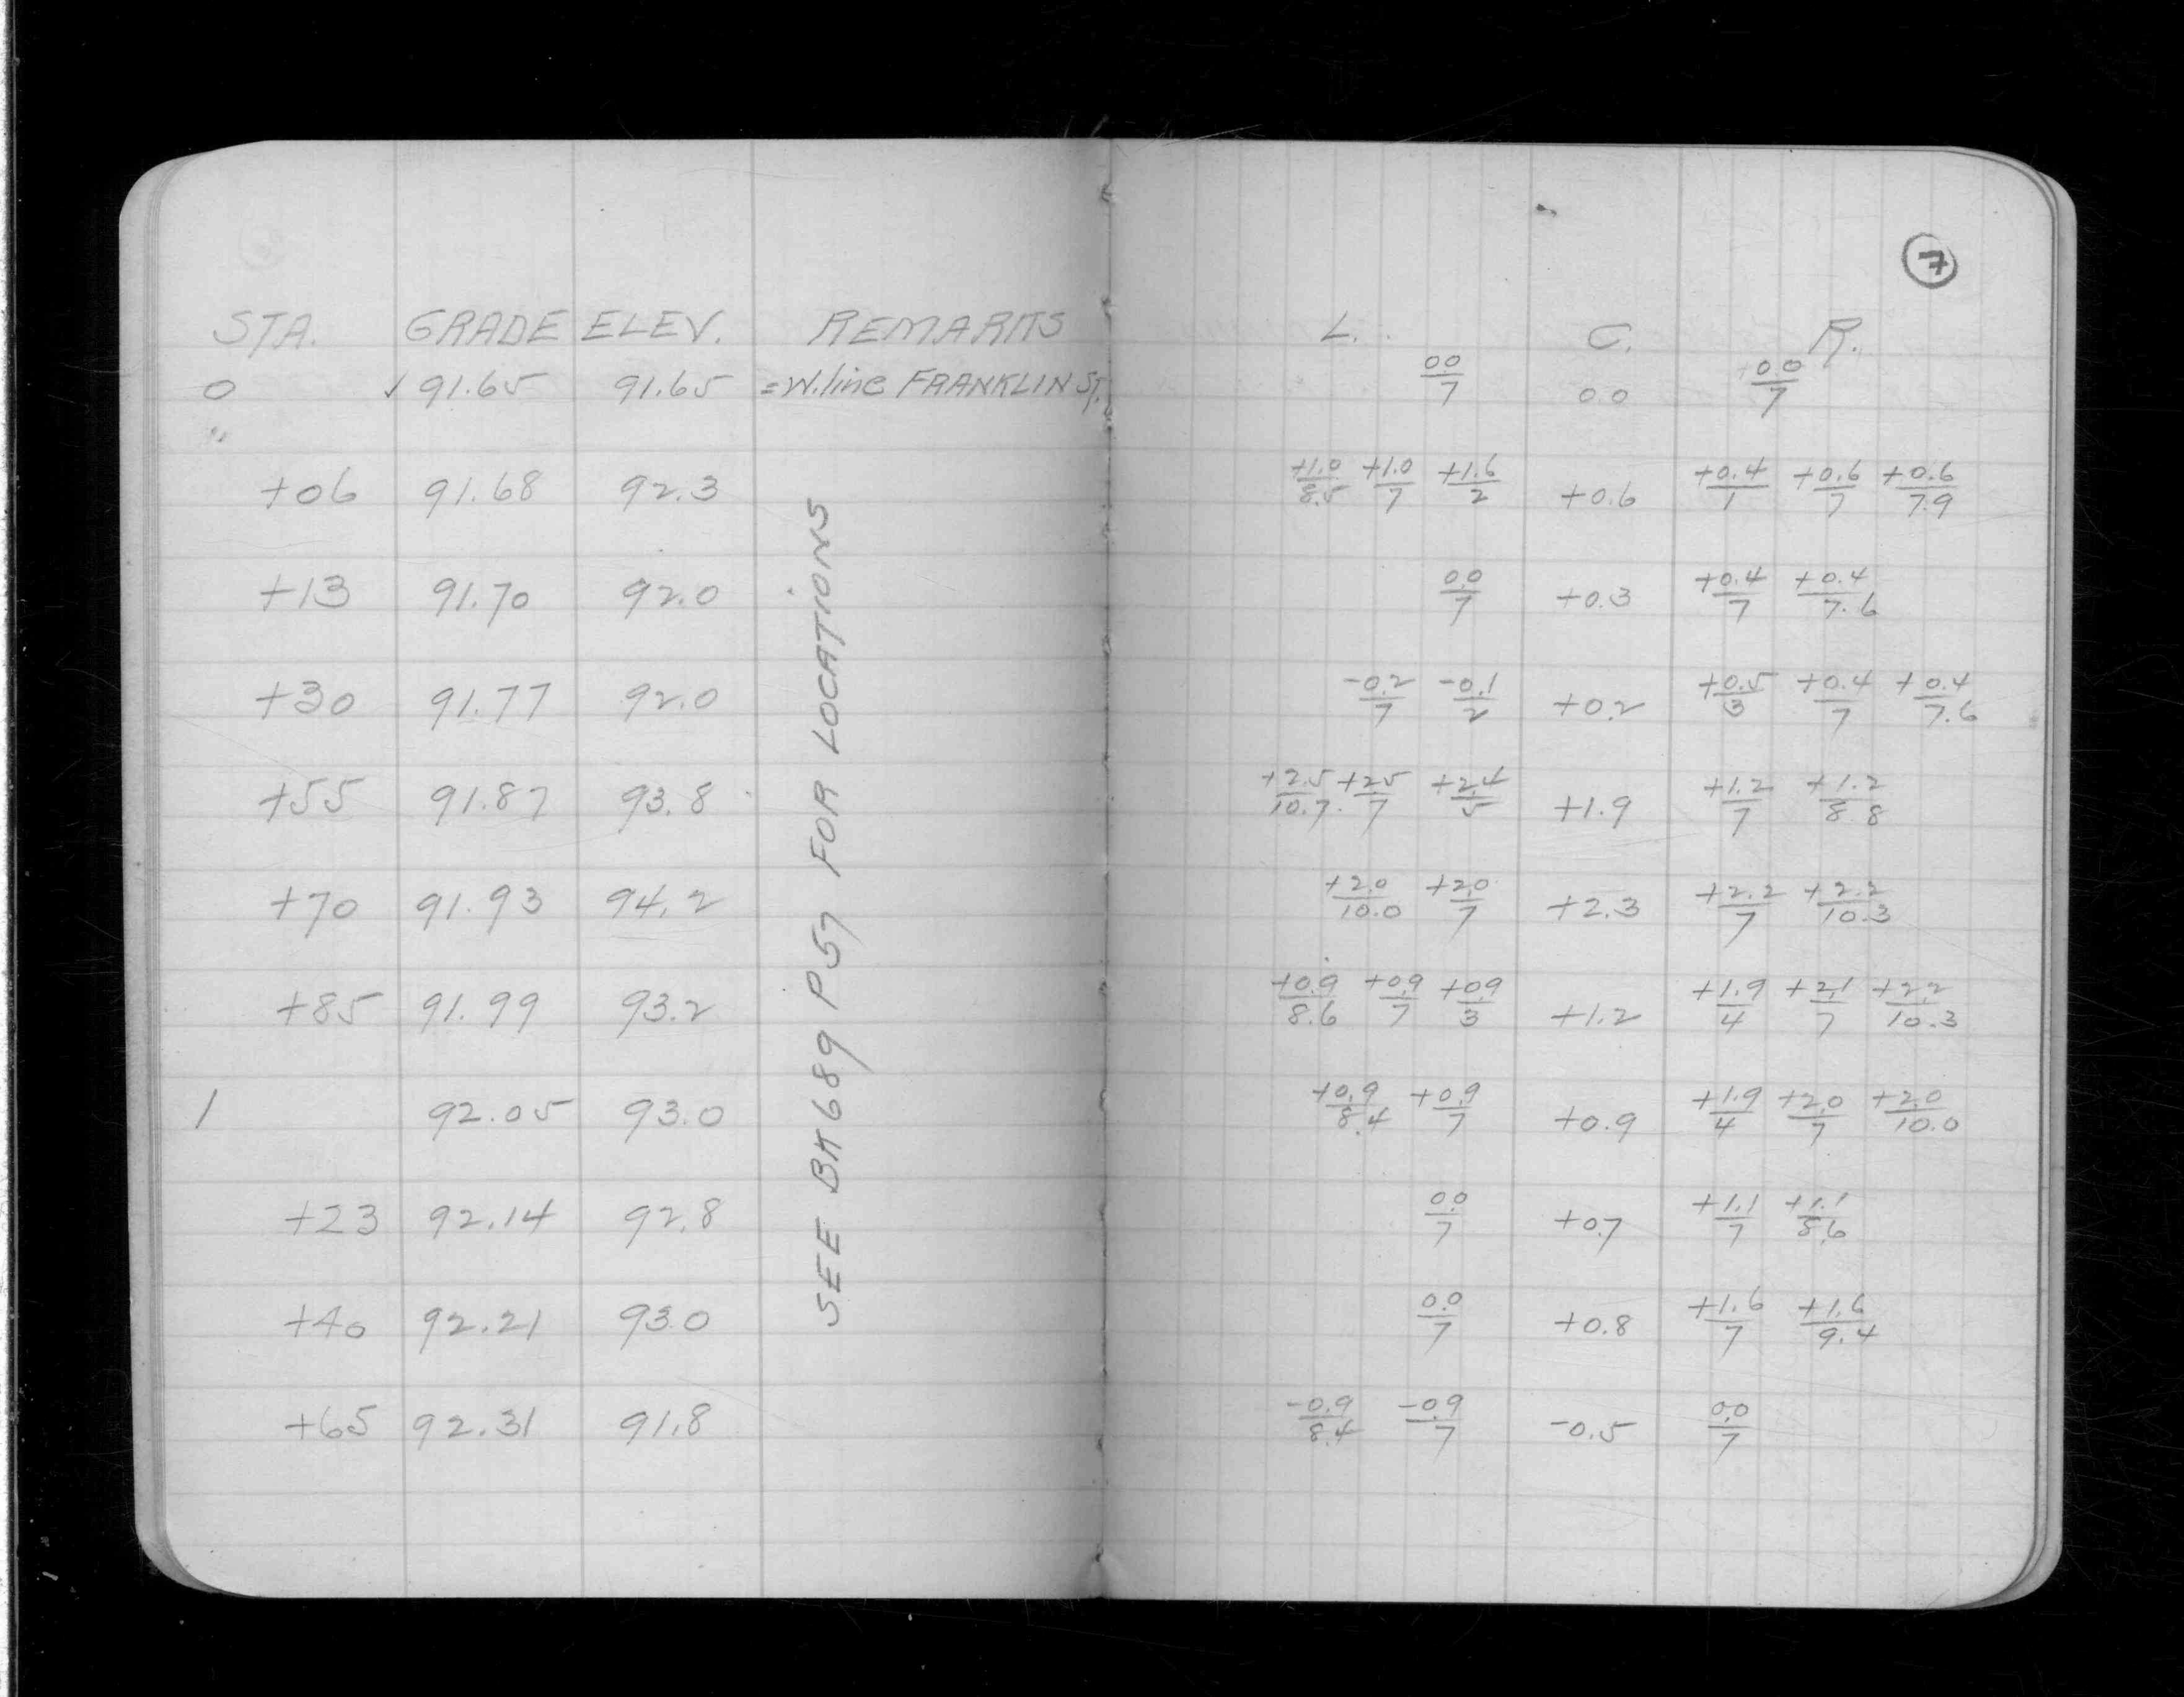 7
STA. GRADE ELEV. REMARKS L. C. R.
0 ✓ 91.65 91.65 =W.line FRANKLIN ST. 0.0/7 0.0 0.0/7
+06 91.68 92.3 +1.0/8.5 +1.0/7 +1.6/2 +0.6 +0.4/1 +0.6/7 +0.6/7.9
+13 91.70 92.0 0.0/7 +0.3 +0.4/7 +0.4/7.6
+30 91.77 92.0 -0.2/7 -0.1/2 +0.2 +0.5/3 +0.4/7 +0.4/7.6
+55 91.87 93.8 +2.5/10.7 +2.5/7 +2.4/5 +1.9 +1.2/7 +1.2/8.8
+70 91.93 94.2 +2.0/10.0 +2.0/7 +2.3 +2.2/7 +2.2/10.3
+85 91.99 93.2 +0.9/8.6 +0.9/7 +0.9/3 +1.2 +1.9/4 +2.1/7 +2.2/10.3
1 92.05 93.0 +0.9/8.4 +0.9/7 +0.9 +1.9/4 +2.0/7 +2.0/10.0
+23 92.14 92.8 0.0/7 +0.7 +1.1/7 +1.1/8.6
+40 92.21 93.0 0.0/7 +0.8 +1.6/7 +1.6/9.4
+65 92.31 91.8 -0.9/8.4 -0.9/7 -0.5 0.0/7
SEE BK689 P57 FOR LOCATIONS